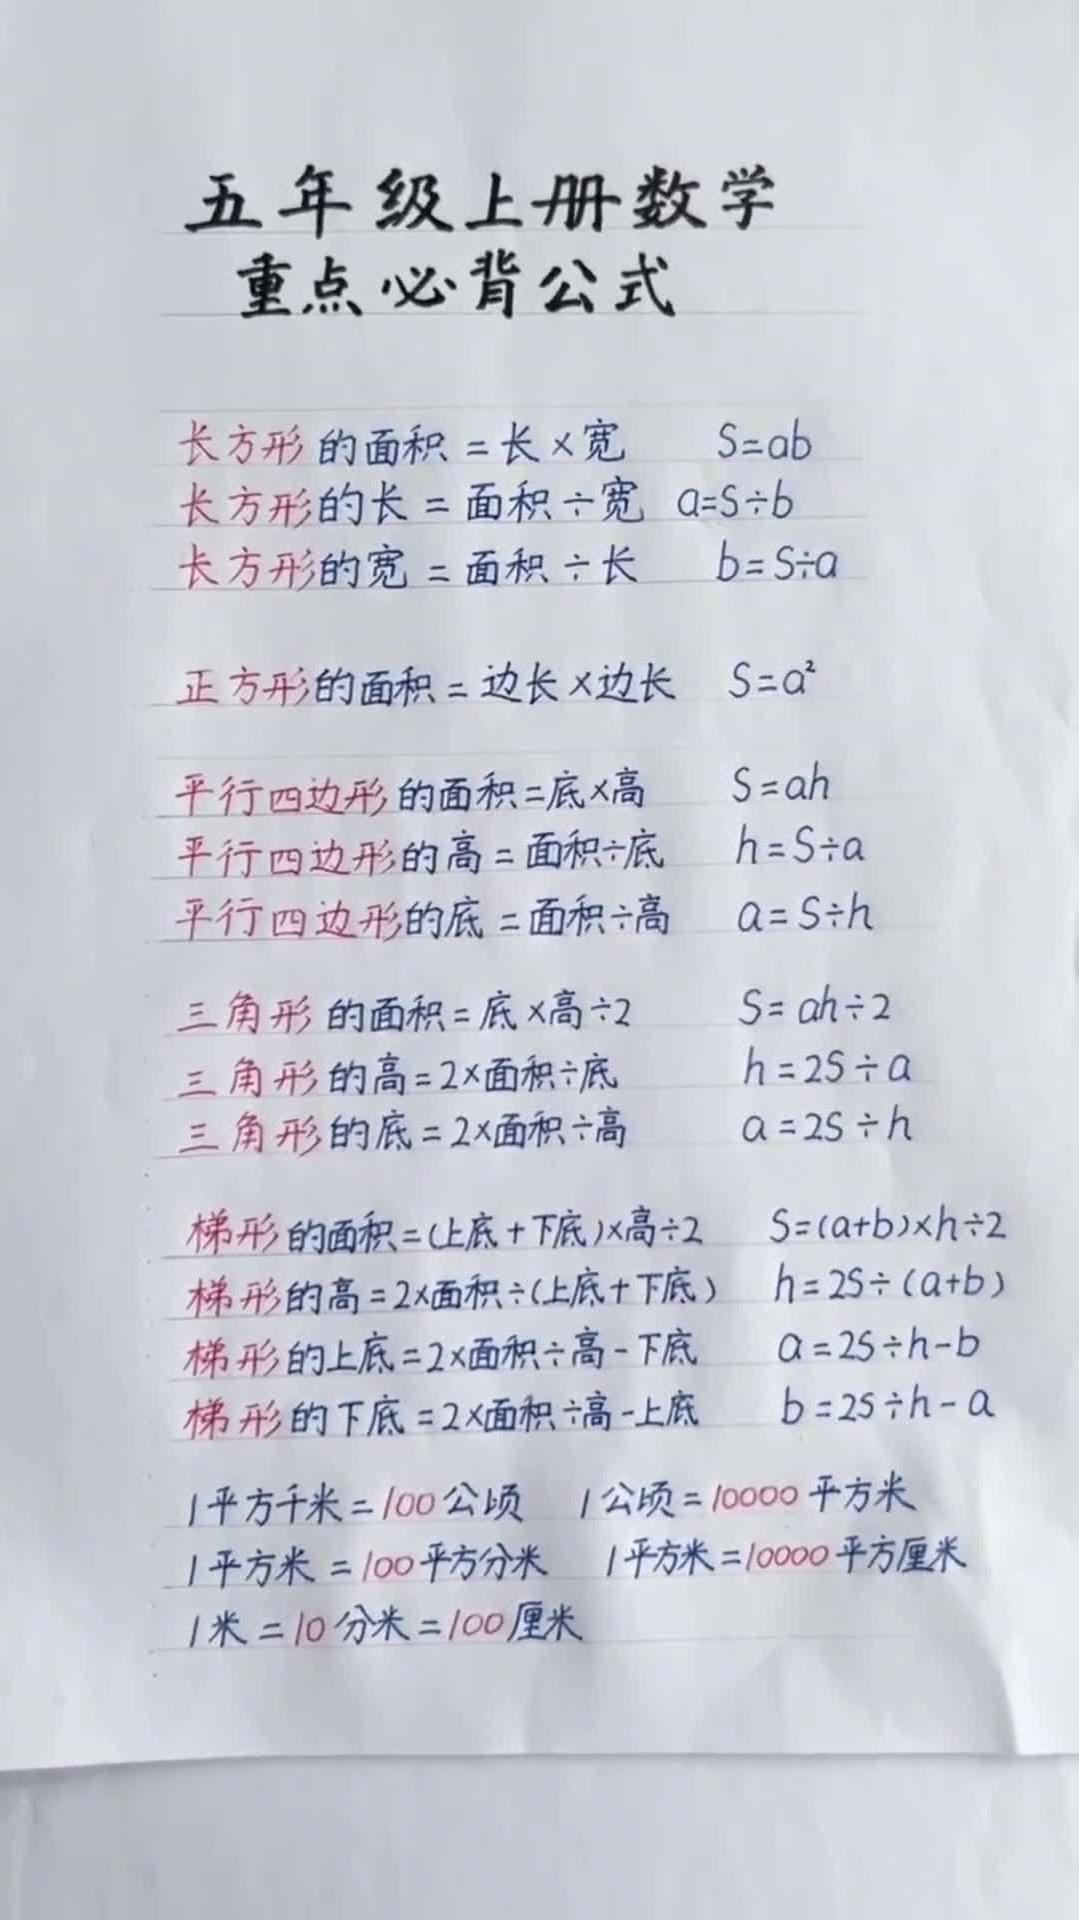 五年级上册数学
重点必背公式
长方形的面积=长×宽 S=ab
长方形的长=面积÷宽 a=S÷b
长方形的宽=面积÷长 b=S÷a
正方形的面积=边长×边长 S=a²
平行四边形的面积=底×高 S=ah
平行四边形的高=面积÷底 h=S÷a
平行四边形的底=面积÷高 a=S÷h
三角形的面积=底×高÷2 S=ah÷2
三角形的高=2×面积÷底 h=2S÷a
三角形的底=2×面积÷高 a=2S÷h
梯形的面积=(上底+下底)×高÷2 S=(a+b)×h÷2
梯形的高=2×面积÷(上底+下底) h=2S÷(a+b)
梯形的上底=2×面积÷高-下底 a=2S÷h-b
梯形的下底=2×面积÷高-上底 b=2S÷h-a
1平方千米=100公顷 1公顷=10000平方米
1平方米=100平方分米 1平方米=10000平方厘米
1米=10分米=100厘米